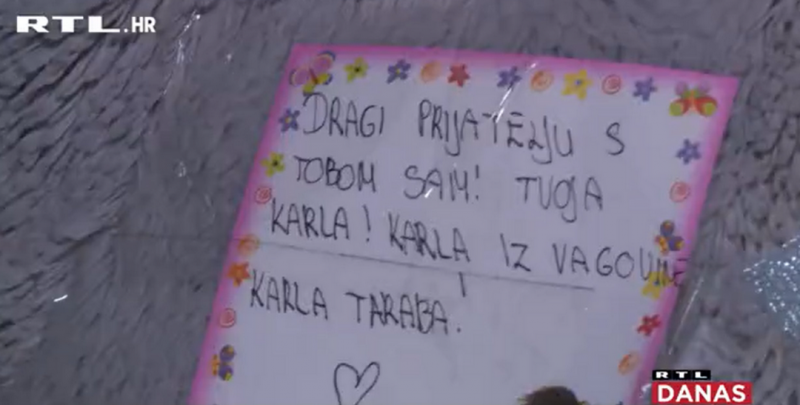 RTL.HR
DRAGI PRIJATELJU S
TOBOM SAM! TVOJA
KARLA! KARLA IZ VAGOVINE
I
KARLA TARABA.
RTL
RTL
DANAS